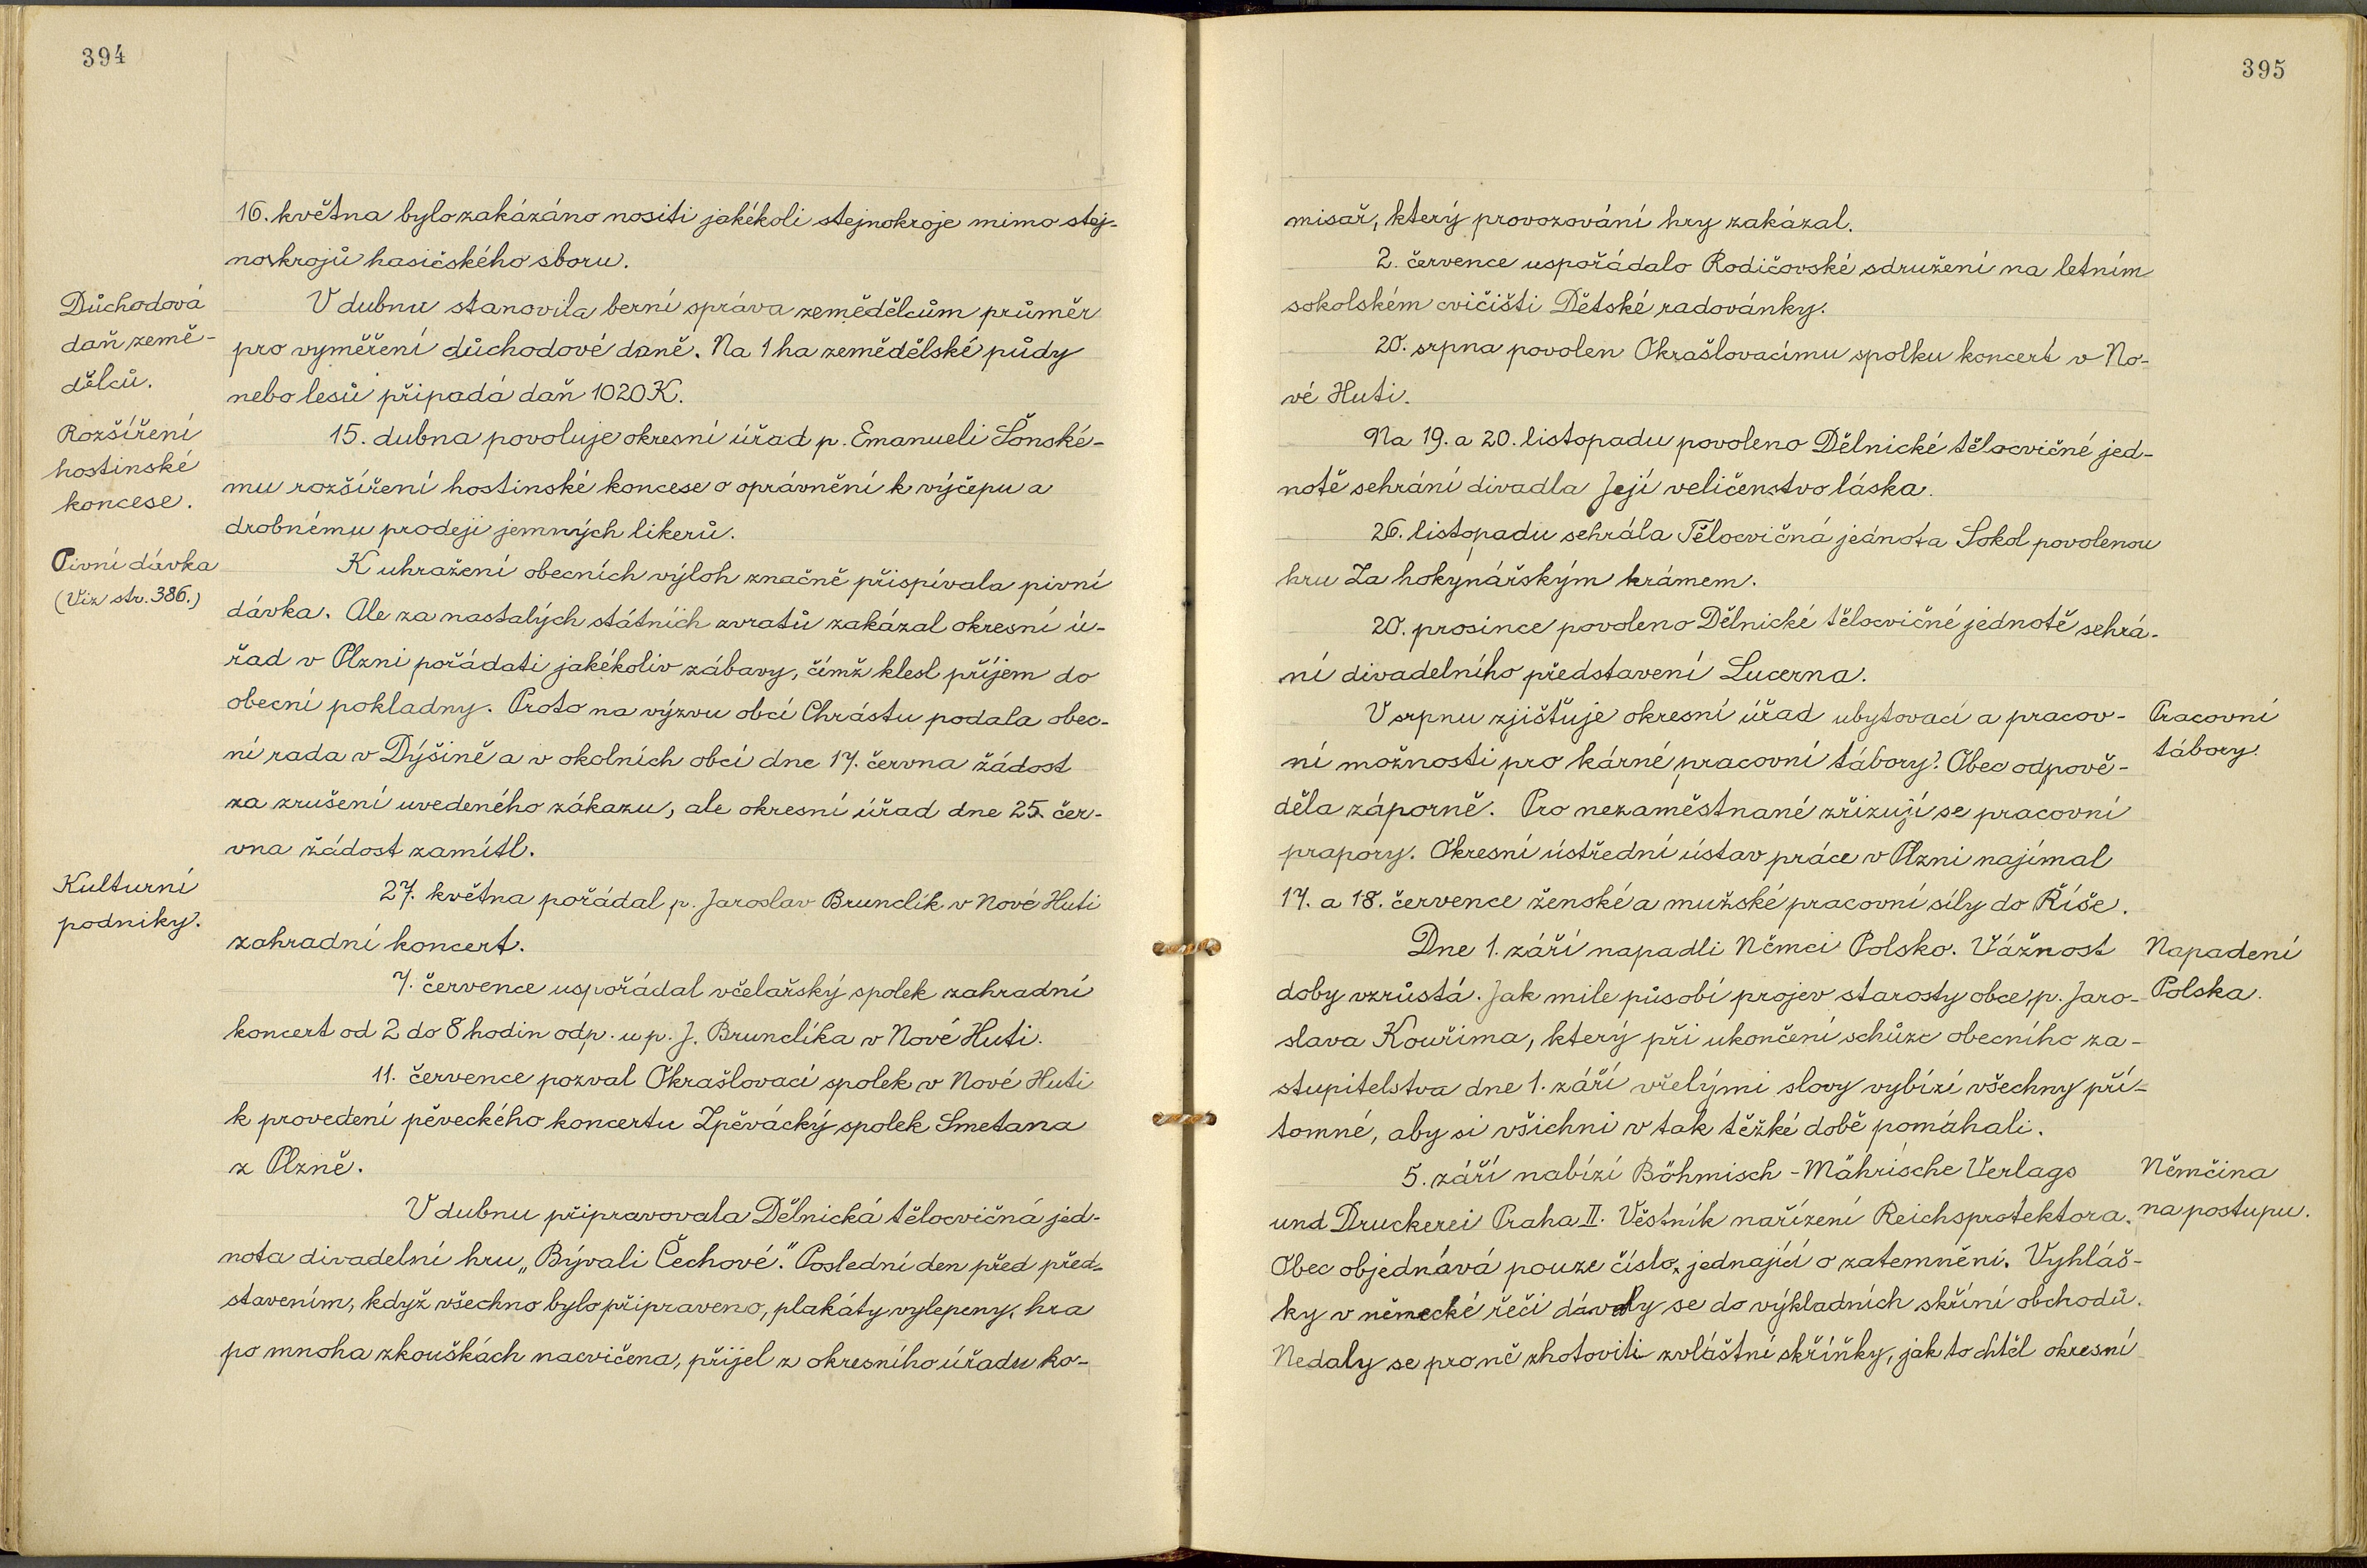 394
16. května bylo zakázáno nositi jakékoli stejnokroje mimo stej-
nokrojů hasičského sboru.
Důchodová
daň země-
dělců.
V dubnu stanovila berní správa zemědělcům průměr
pro vyměření důchodové daně. Na 1 ha zemědělské půdy
nebo lesů připadá daň 1020 K.
Rozšíření
hostinské
koncese.
15. dubna povoluje okresní úřad p. Emanueli Šonské-
mu rozšíření hostinské koncese o oprávnění k výčepu a
drobnému prodeji jemných likerů.
Pivní dávka
(Viz str. 386.)
K uhražení obecních výloh značně přispívala pivní
dávka. Ale za nastalých státních zvratů zakázal okresní ú-
řad v Plzni pořádati jakékoliv zábavy, čímž klesl příjem do
obecní pokladny. Proto na výzvu obcí Chrástu podala obec-
ní rada v Dýšině a v okolních obcí dne 17. června žádost
za zrušení uvedeného zákazu, ale okresní úřad dne 25. čer-
vna žádost zamítl.
Kulturní
podniky.
27. května pořádal p. Jaroslav Brunclík v Nové Huti
zahradní koncert.
7. července uspořádal včelařský spolek zahradní
koncert od 2 do 8 hodin odp. u p. J. Brunclíka v Nové Huti.
11. července pozval Okrašlovací spolek v Nové Huti
k provedení pěveckého koncertu Zpěvácký spolek Smetana
z Plzně.
V dubnu připravovala Dělnická tělocvičná jed-
nota divadelní hru „Bývali Čechové." Poslední den před před-
stavením, když všechno bylo připraveno, plakáty vylepeny, hra
po mnoha zkouškách nacvičena, přijel z okresního úřadu ko-
395
misař, který provozování hry zakázal.
2. července uspořádalo Rodičovské sdružení na letním
sokolském cvičišti Dětské radovánky.
20. srpna povolen Okrašlovacímu spolku koncert v No-
vé Huti.
Na 19. a 20. listopadu povoleno Dělnické tělocvičné jed-
notě sehrání divadla Její veličenstvo láska.
26. listopadu sehrála Tělocvičná jednota Sokol povolenou
hru Za hokynářským krámem.
20. prosince povoleno Dělnické tělocvičné jednotě sehrá-
ní divadelního představení Lucerna.
V srpnu zjišťuje okresní úřad ubytovací a pracov-
ní možnosti pro kárné pracovní tábory. Obec odpově-
děla záporně. Pro nezaměstnané zřizují se pracovní
prapory. Okresní ústřední ústav práce v Plzni najímal
17. a 18. července ženské a mužské pracovní síly do Říše.
Pracovní
tábory.
Dne 1. září napadli Němci Polsko. Vážnost
doby vzrůstá. Jak mile působí projev starosty obce, p. Jaro-
slava Kouřima, který při ukončení schůze obecního za-
stupitelstva dne 1. září vřelými slovy vybízí všechny pří-
tomné, aby si všichni v tak těžké době pomáhali.
Napadení
Polska.
5. září nabízí Böhmisch-Mährische Verlags
und Druckerei Praha II. Věstník nařízení Reichsprotektora.
Obec objednává pouze číslo, jednající o zatemnění. Vyhláš-
ky v německé řeči dávaly se do výkladních skříní obchodů.
Nedaly se pro ně zhotoviti zvláštní skříňky, jak to chtěl okresní
Němčina
na postupu.